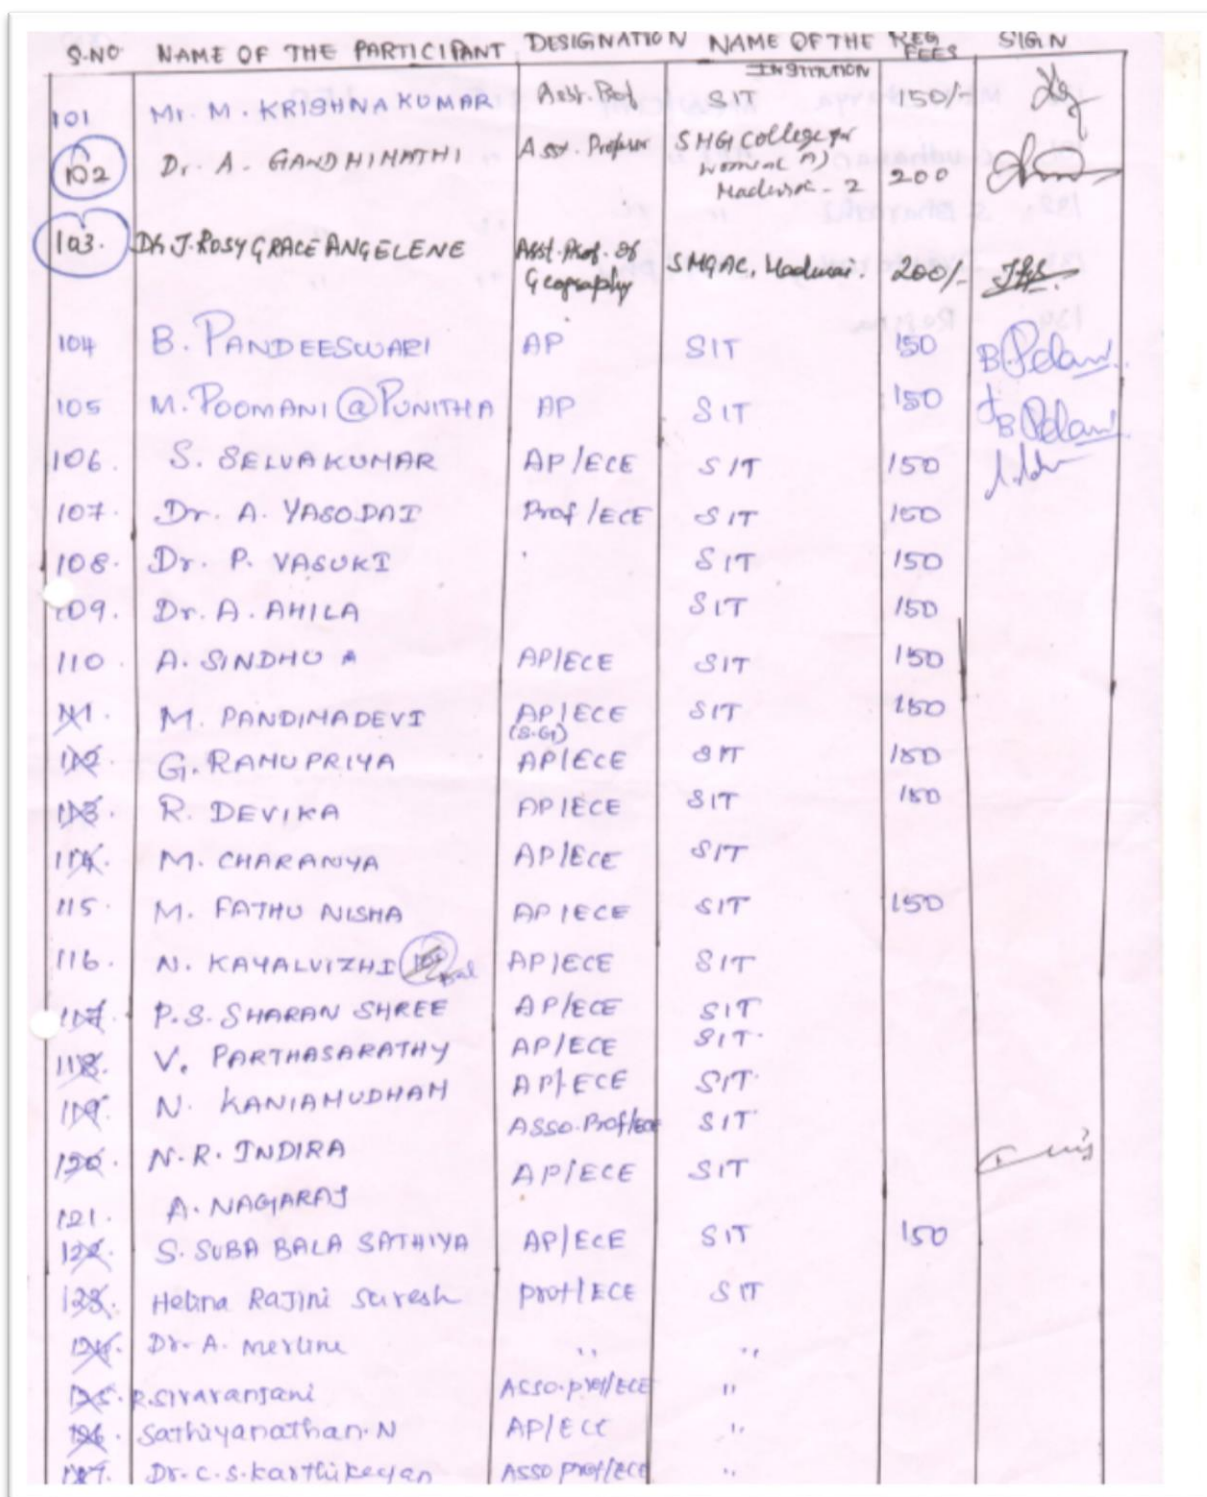 S.NO NAME OF THE PARTICIPANT DESIGNATION NAME OF THE INSTITUTION REG FEES SIGN
101 Mr. M. KRISHNA KUMAR Asst. Prof SIT 150/-
102 Dr. A. GANDHIMATHI Asst. Professor SMGI College for
Madurai - 2 200
103. Dr. J. ROSY GRACE ANGELENE Asst. Prof. of SMGAC, Madurai. 200/-
Geography
104 B. PANDEESWARI AP SIT 150
105 M. POOMANI @ PUNITHA AP SIT 150
106. S. SELVAKUMAR AP/ECE SIT 150
107. Dr. A. YASODAI Prof/ECE SIT 150
108. Dr. P. VASUKI SIT 150
109. Dr. A. AHILA SIT 150
110. A. SINDHU A AP/ECE SIT 150
111. M. PANDIMADEVI AP/ECE SIT 150
(S.G)
112. G. RAMUPRIYA AP/ECE SIT 150
113. R. DEVIKA AP/ECE SIT 150
114. M. CHARANYA AP/ECE SIT
115. M. FATHU NISHA AP/ECE SIT 150
116. N. KAYALVIZHI AP/ECE SIT
117. P.S. SHARAN SHREE AP/ECE SIT
118. V. PARTHASARATHY AP/ECE SIT.
119. N. KANIAMUDHAM AP/ECE SIT.
120. N.R. INDIRA ASSO.Prof/ECE SIT
121. A. NAGARAJ AP/ECE SIT
122. S. SUBA BALA SATHIYA AP/ECE SIT 150
123. Helina Rajini Suresh prof/ECE SIT
124. Dr. A. Merline ,, ,,
125. R. Sivaranjani Asso.prof/ECE ,,
126. Sathiyanathan. N AP/ECE ,,
127. Dr. C. S. Karthikeyan Asso prof/ECE ,,